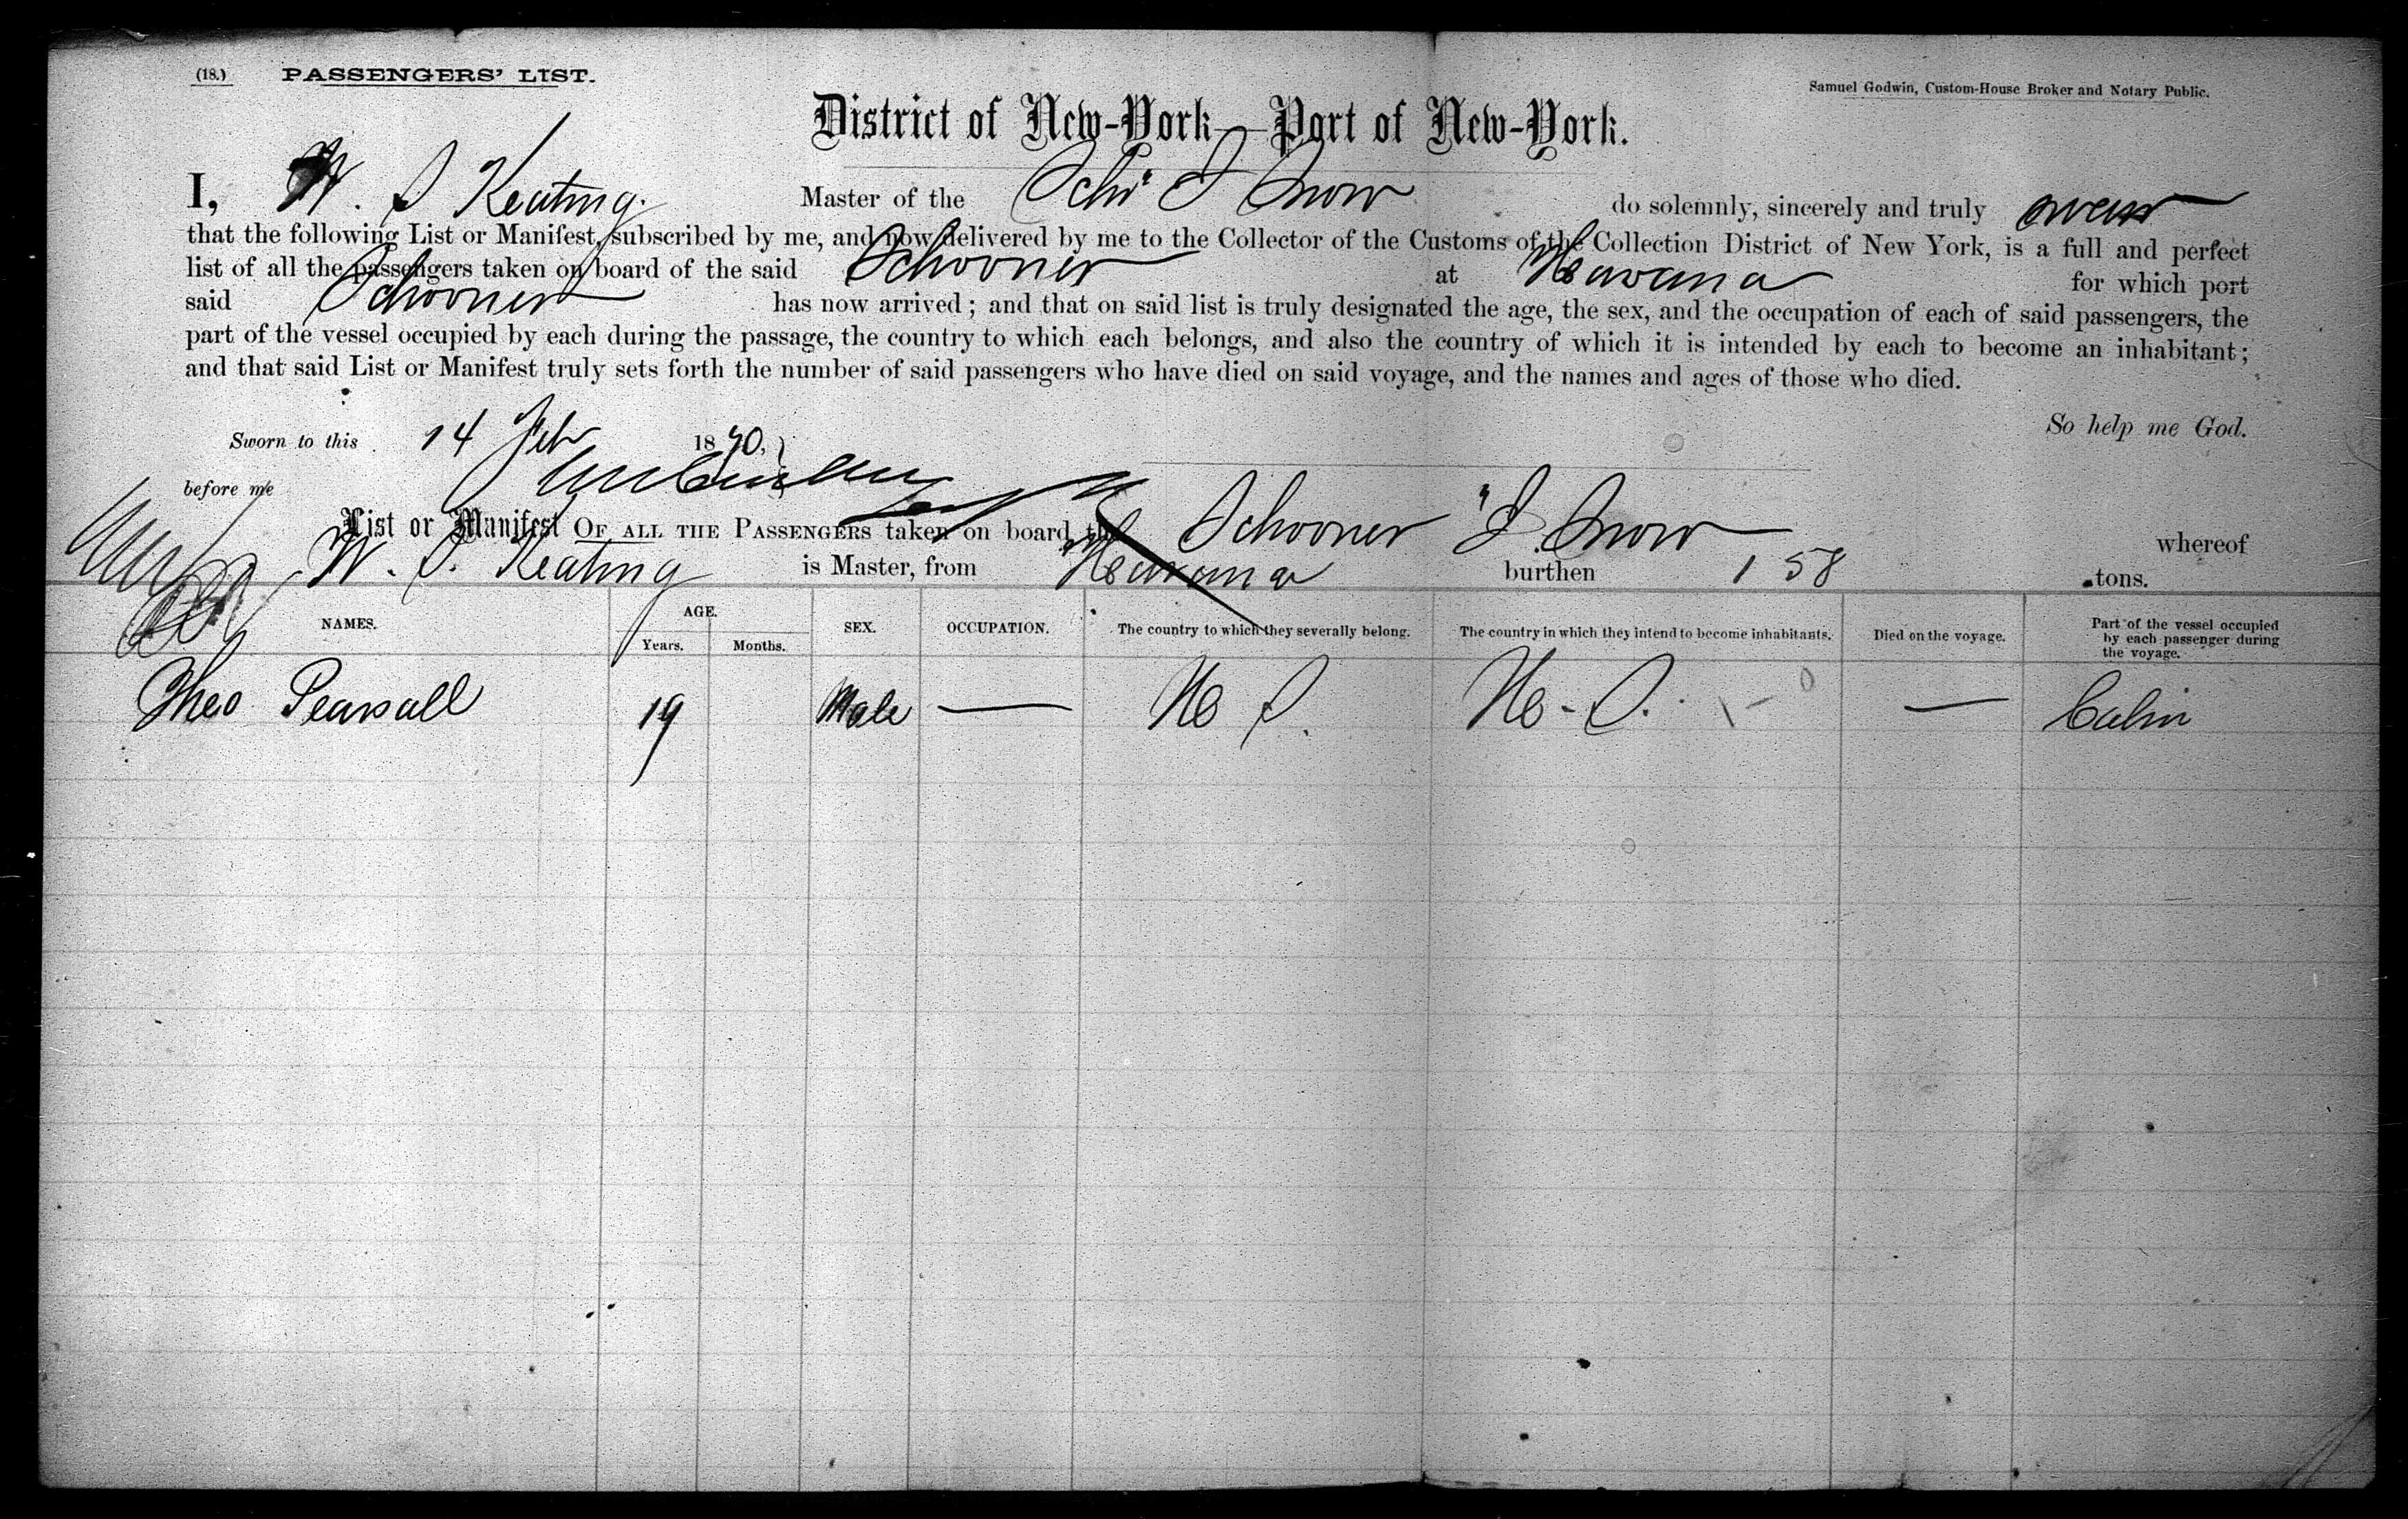 (18.) PASSENGERS' LIST.
Samuel Godwin, Custom-House Broker and Notary Public.
District of New-York—Port of New-York.
I, W. S Keating. Master of the Schr "I Snow do solemnly, sincerely and truly swear
that the following List or Manifest, subscribed by me, and now delivered by me to the Collector of the Customs of the Collection District of New York, is a full and perfect
list of all the passengers taken on board of the said Schooner at Havana for which port
said Schooner has now arrived; and that on said list is truly designated the age, the sex, and the occupation of each of said passengers, the
part of the vessel occupied by each during the passage, the country to which each belongs, and also the country of which it is intended by each to become an inhabitant;
and that said List or Manifest truly sets forth the number of said passengers who have died on said voyage, and the names and ages of those who died.
So help me God.
Sworn to this 14 Feb 1870.
before me
List or Manifest OF ALL THE PASSENGERS taken on board the Schooner "I. Snow whereof
W. S. Keating is Master, from Havana burthen 158 tons.
NAMES. AGE. Years. Months. SEX. OCCUPATION. The country to which they severally belong. The country in which they intend to become inhabitants. Died on the voyage. Part of the vessel occupied by each passenger during the voyage.
Theo Pearsall 19 Male — U S. U. S. — Cabin